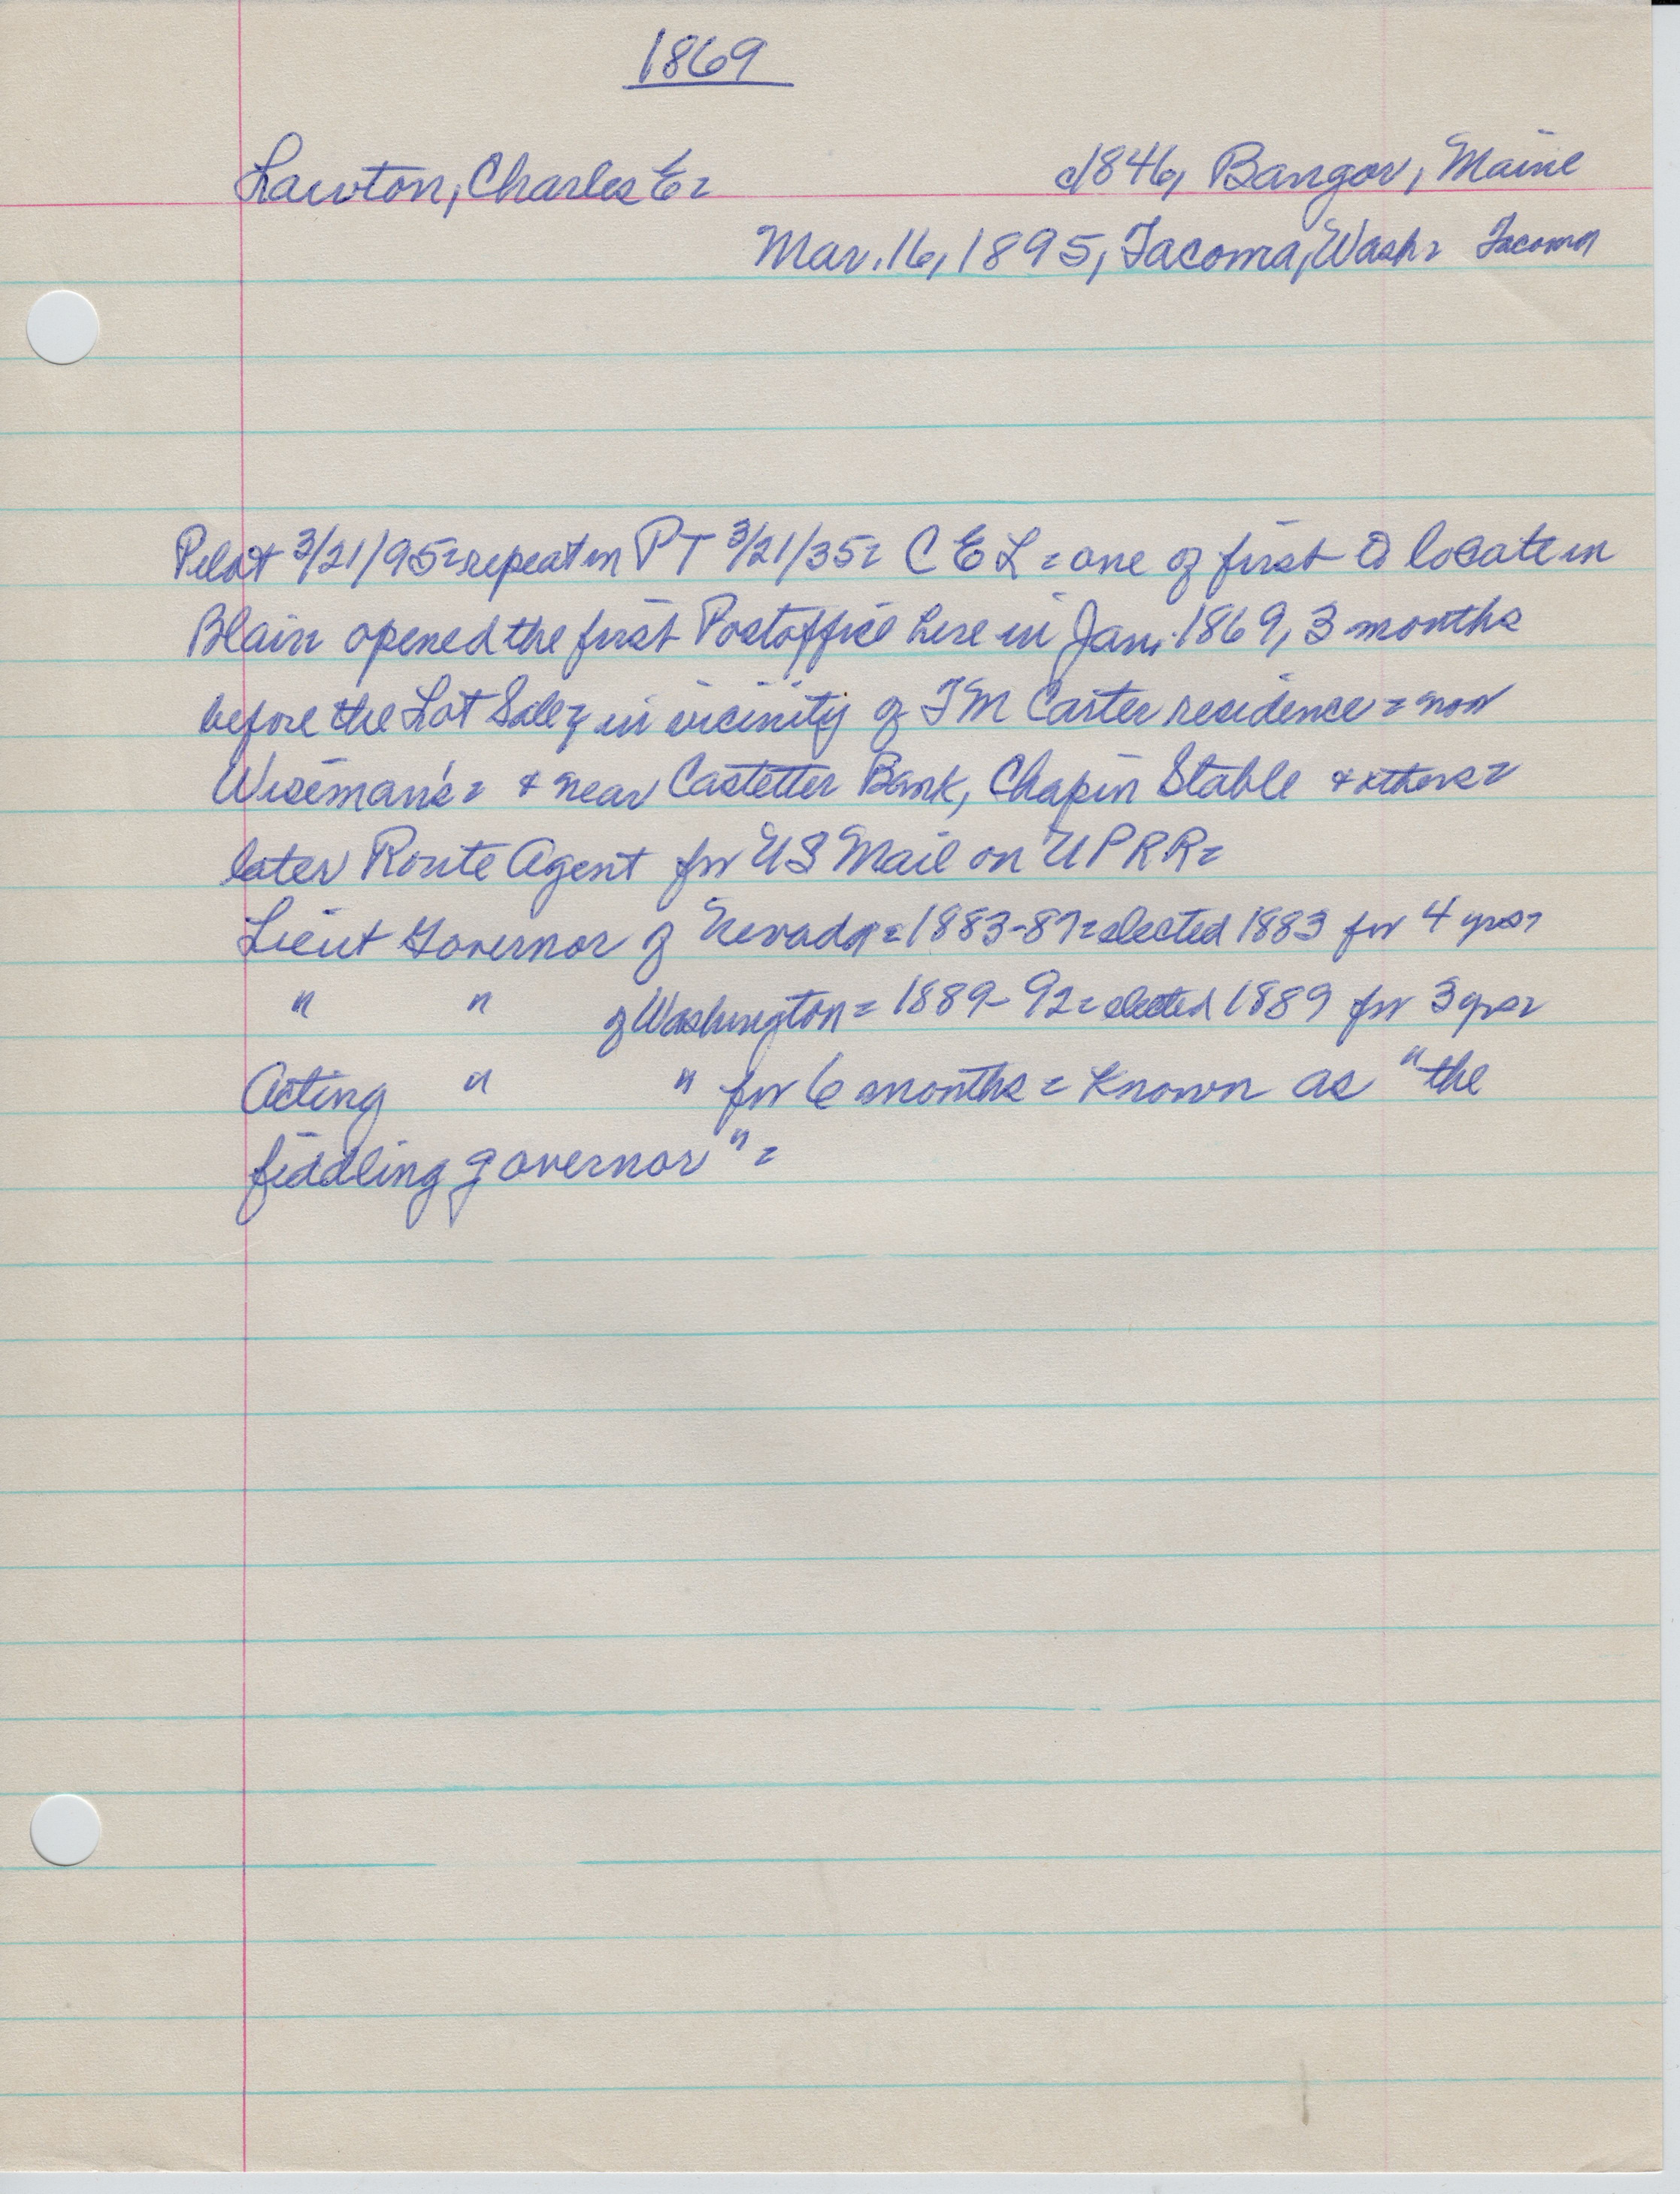 1869
Lawton, Charles E=
c1846, Bangor, Maine
Mar. 16, 1895, Tacoma, Wash= Tacoma
Pilot 3/21/95=repeat in PT 3/21/35= C E L = one of first to locate in
Blair opened the first Postoffice here in Jan. 1869, 3 months
before the Lot Sale= in vicinity of T M Carter residence = now
Wiseman's= + near Castetter Bank, Chapin Stable + others=
later Route Agent for US Mail on UPRR=
Lieut Governor of Nevada=1883-87=elected 1883 for 4 yrs=
" " of Washington= 1889-92=elected 1889 for 3 yrs=
Acting " " for 6 months = Known as "the
fiddling governor"=